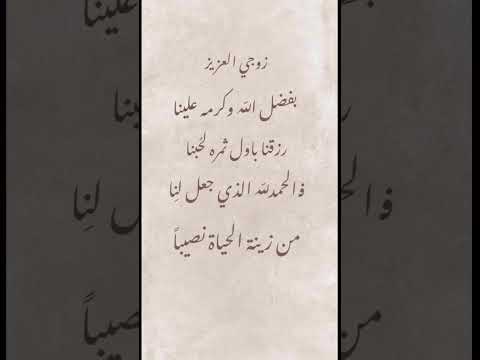 زوجي العزيز
بفضل الله وكرمه علينا
رزقنا باول ثمره لحبنا
فالحمدلله الذي جعل لنِا
من زينة الحياة نصيباً